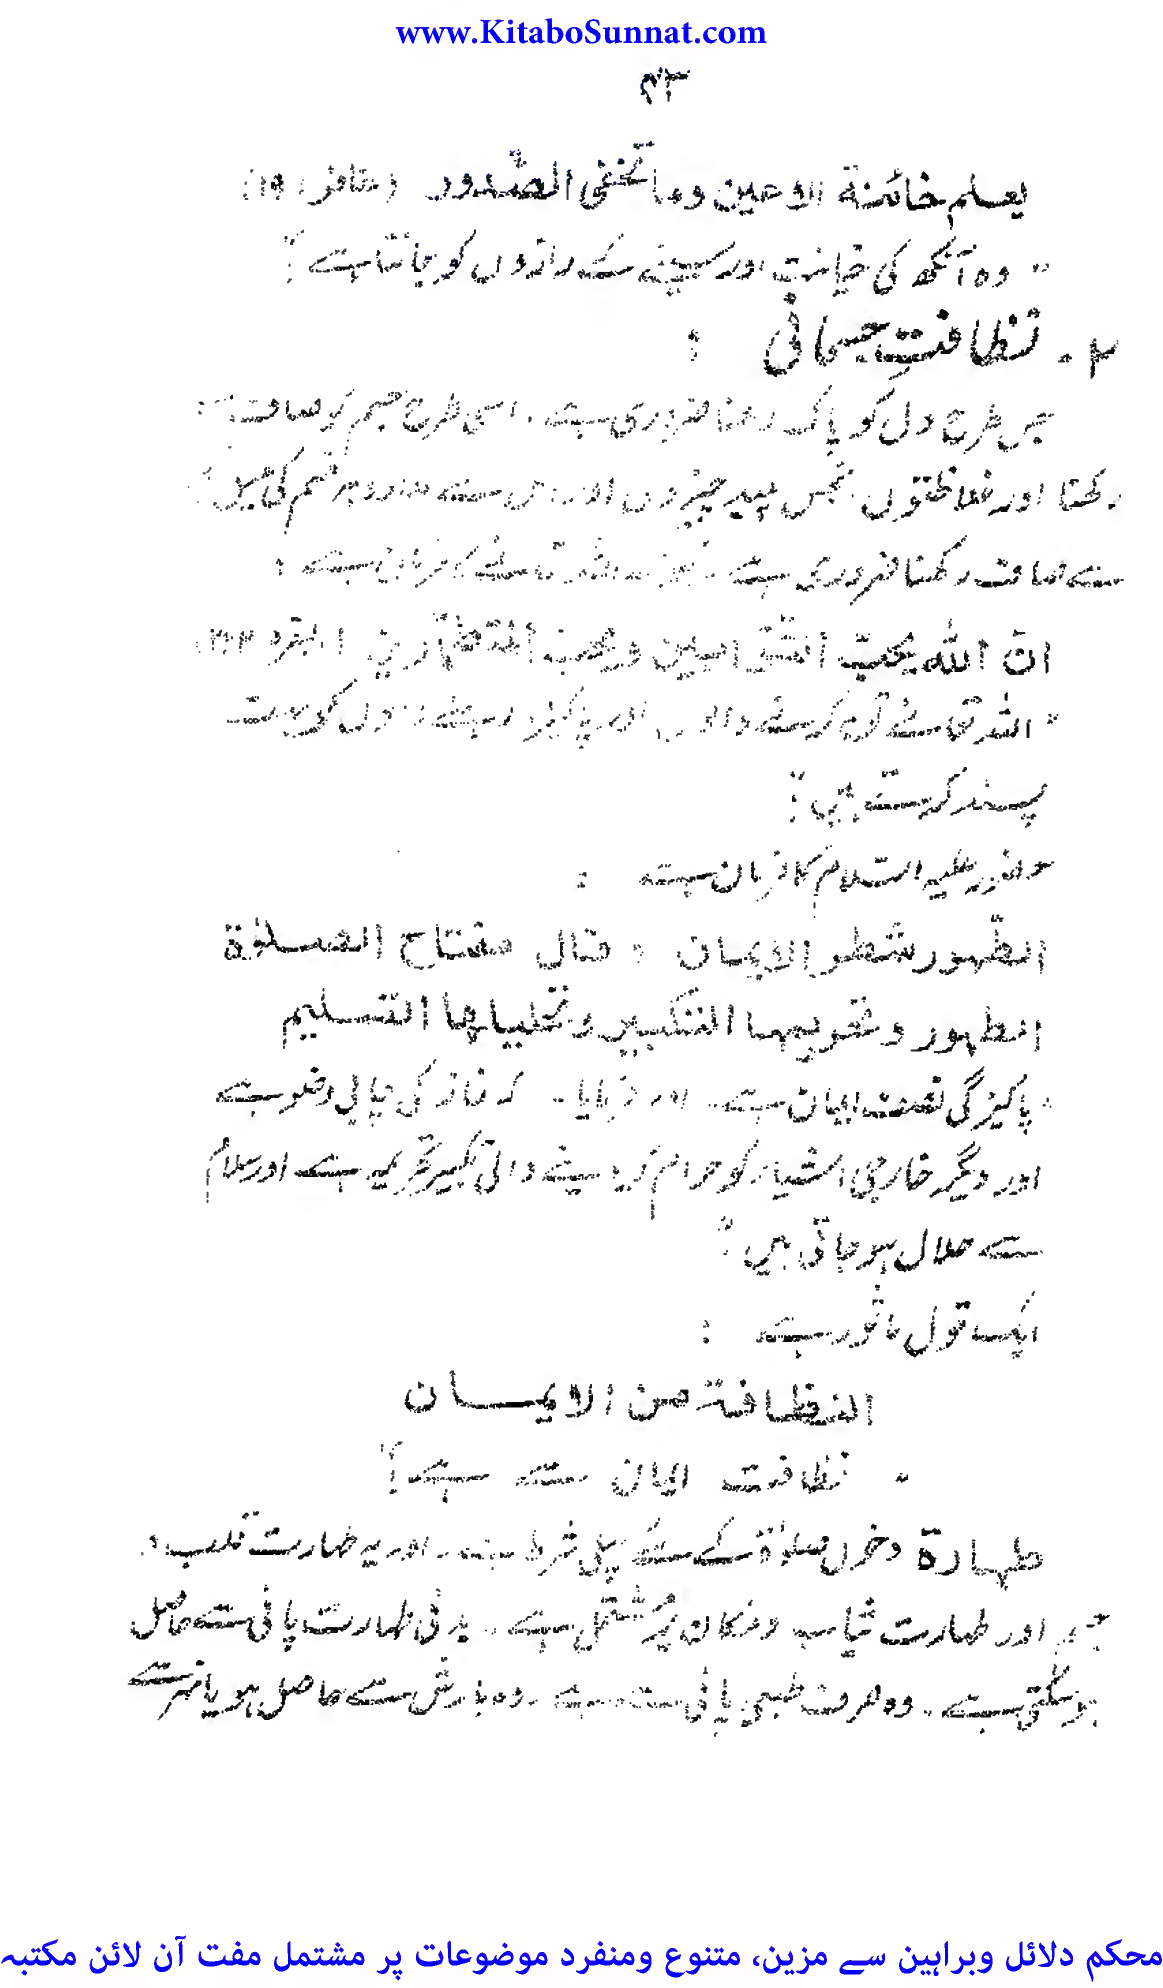 www.KitaboSunnat.com
۴۳
يعلم خائنة الاعين وما تخفی الصّدور (غافر: ۱۹)
"وہ آنکھ کی خیانت اور سینے کے رازوں کو جانتا ہے"
۲- نظافتِ جسمانی :
جس طرح دل کو پاک رکھنا ضروری ہے، اسی طرح جسم کو صاف
رکھنا اور غلاظتوں نجس پلید چیزوں اور ہر قسم کی میل
سے صاف رکھنا ضروری ہے۔ فرمان ہے :
انّ اللّٰه يحبّ التّوّابين ويحب المتطهّرين (البقره
"اللہ تعالٰے توبہ کرنے والوں اور پاکیزہ رہنے والوں کو بہت
پسند کرتے ہیں"
حضور علیہ السلام کا فرمان ہے :
الطّهور شطر الايمان ، قال مفتاح الصلوٰة
الطهور وتحريمها التكبير وتحليلها التسليم
"پاکیزگی نصف ایمان ہے۔ اور فرمایا۔ کہ نماز کی چابی وضو ہے
اور دیگر خارجی اشیاء کو حرام کر دینے والی تکبیر تحریمہ ہے اور سلام
سے حلال ہو جاتی ہیں"
ایک قول ماثور ہے :
النظافة من الايمان
"نظافت ایمان سے ہے"
طہارۃ دخول صلوٰۃ کے لئے پہلی شرط ہے۔ اور یہ طہارت قلب و
جسم اور طہارت ثیاب و مکان پر مشتمل ہے۔ بدنی طہارت پانی سے حاصل
ہو سکتی ہے۔ وہ صرف طبعی پانی ہے۔ وہ بارش سے حاصل ہو یا نہر سے
محکم دلائل وبراہین سے مزین، متنوع ومنفرد موضوعات پر مشتمل مفت آن لائن مکتبہ